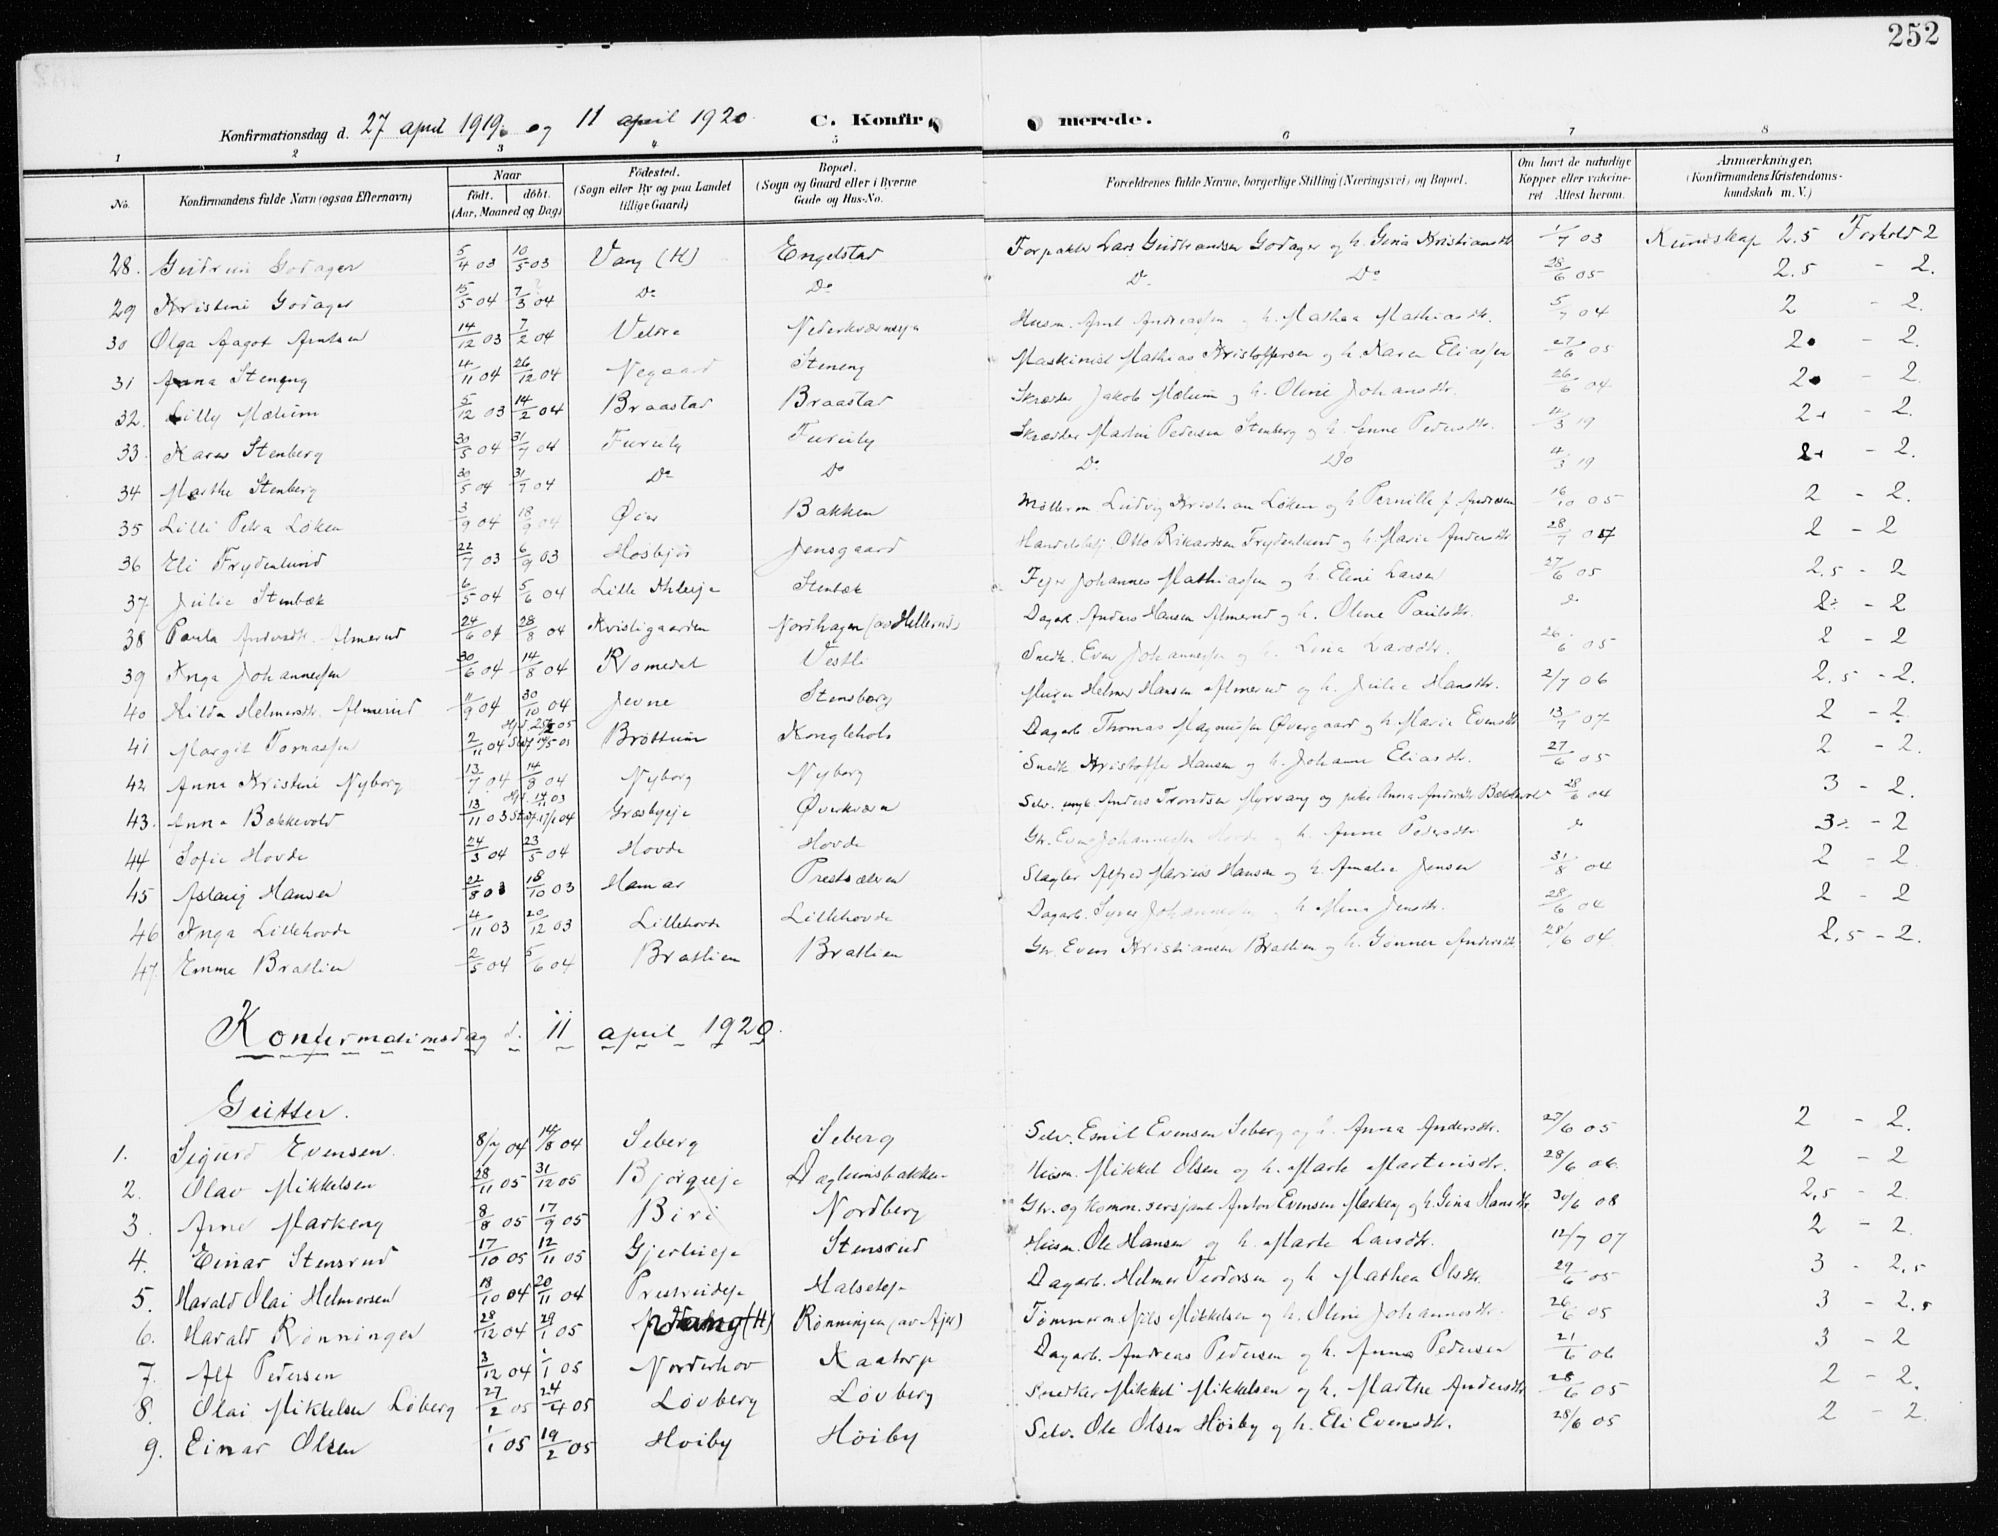 252
Konfirmationsdag d. 27 april 1919. og 11 april 1920 C. Konfir merede.
1 2 3 4 5 6 7 8
No. Konfirmandens fulde Navn (ogsaa Efternavn) Naar født. døbt. (Aar, Maaned og Dag) Fødested. (Sogn eller By og paa Landet tillige Gaard) Bopæl. (Sogn og Gaard eller i Byerne Gade og Hus-No. Forældrenes fulde Navne, borgerlige Stilling (Næringsvei) og Bopæl. Om havt de naturlige Kopper eller vakcineret Attest herom. Anmærkninger, (Konfirmandens Kristendomskundskab m. V.)
28. Gudrun Godager 5/4 03 10/5 03 Vang (H) Engelstad Forpakter Lars Gudbrandsen Godager og h. Gina Kristiansdtr. 1/7 03 Kundskap 2.5 Forhold 2
29 Kristine Godager 15/5 04 7/3 04 Do Do Do Do 28/6 05 2.5 - 2.
30 Olga Aagot Arntsen 14/12 03 7/2 04 Veldre Husm. Arnt Andreassen og h. Mathea Mathiasdtr. 5/7 04 2 - 2.
31 Anna Steneng 4/11 04 26/12 04 Negaard Steneng Maskinist Mathias Kristoffersen og h. Karen Eliassen 27/6 05 2. - 2.
32. Lilly Mælum 5/12 03 14/2 04 Braastad Braastad Skrædder Jakob Mælum og h. Oline Johansdtr. 26/6 04 2. - 2
33. Karen Stenberg 30/5 04 31/7 04 Furuly Furuly Skrædder Martin Pedersen Stenberg og h. Anne Pedersdtr. 4/3 19 2. - 2.
34 Marthe Stenberg 30/5 04 31/7 04 Do Do Do Do 4/3 19 2. - 2.
35 Lilli Petra Løken 3/9 04 18/9 04 Øier Bakken Møllerm. Ludvig Kristian Løken og h. Pernille f. Andresen 16/10 05 2 - 2.
36 Eli Frydenlund 22/7 03 6/9 03 Hosbjør Jensgaard Handelsbetj. Otto Rikardsen Frydenlund og h. Marie Andersdtr. 28/7 2 - 2
37. Julie Stenbæk 6/5 04 5/6 04 Lille Stenbæk Johannes Mathiassen og h. Eline Larsen 27/6 05 2.5 - 2
38 Paula Andersdtr. Almerud 24/6 04 28/8 04 Kvistigaarden Nordhagen (av Hellerud) Dagarb. Anders Hansen Almerud og h. Oline Paulsdtr. do 2. - 2
39 Inga Johannessen 30/6 04 14/8 04 Romedal Vestli Snedk. Even Johannessen og h. Lina Larsdtr. 26/6 05 2 - 2
40 Hilda Helmersdtr. Almerud 11/9 04 30/10 04 Jevne Stensberg Murer Helmer Hansen Almerud og h. Julie Hansdtr. 2/7 06 2.5 - 2.
41 Margit Tomassen 2/11 04 Brøttum Konglehol Dagarb. Thomas Magnussen Øvergaard og h. Marie Evensdtr. 13/7 07 2 - 2.
42 Anna Kristine Nyborg 13/7 04 14/8 04 Nyborg Nyborg Snedk Kristoffer Hansen og h. Johanne Eliasdtr. 27/6 05 2 - 2.
43. Anna Bækkevold 13/11 03 Øverkværn Selv. ungk. Anders Trondsen Myrvang og pike Anna Andersdtr. Bækkevold 28/6 04 3 - 2.
44 Sofie Hovde 24/3 04 23/5 04 Hovde Hovde Gbr. Even Johannessen Hovde og h. Anne Pedersdtr. do 3. - 2
45 Aslaug Hansen 22/8 03 18/10 03 Hamar Slagter Alfred Marius Hansen og h. Amalie Jensen 31/8 04 2 - 2.
46 Inga Lillehovde 4/11 03 20/12 03 Lillehovde Lillehovde Dagarb. Syver Johannessen og h. Mina Jensdtr. 28/6 04 2 - 2
47. Emma Bratlien 2/5 04 5/6 04 Bratlien Bratlien Gbr. Even Kristiansen Bratlien og h. Gunner Andersdtr. 28/6 04 2.5 - 2.
Konfirmationsdag d. 11 april 1920.
Gutter.
1. Sigurd Evensen. 8/7 04 14/8 04 Seberg Seberg Selv. Emil Evensen Seberg og h. Anna Andersdtr. 27/6 05 2 - 2.
2. Olav Mikkelsen 28/11 05 31/12 05 Bjørgeeje Dæhlumsbakken Husm. Mikkel Olsen og h. Marte Martinisdtr. 28/6 06. 2 - 2
3. Arne Markeng 8/8 05 17/9 05 Biri Nordberg Gbr. og Komm. sersjant Anton Evensen Markeng og h. Gina Hansdtr. 30/6 08 2.5 - 2.
4. Einar Stensrud 17/10 05 12/11 05 Gjerlueje Stensrud Husm. Ole Hansen og h. Marte Larsdtr. 12/7 07 2 - 2.
5. Harald Olai Helmersen 18/10 04 20/11 04 Prestrudeje Halseteje Dagarb. Helmer Teodorsen og h. Mathea Olsdtr. 29/6 05 3 - 2.5
6. Harald Rønningen 28/12 04 29/1 05 Vang (H) Rønningen (av Ajer) Tømmerm. Nils Mikkelsen og h. Oline Johannesdtr. 26/6 05 3 - 2.5
7. Alf Pedersen 3/12 04 1/1 05 Norderhov Kaatorp Dagarb. Andreas Pedersen og h. Anna Pedersen 21/6 06 3 - 2
8. Olai Mikkelsen Løberg 27/2 05 24/4 05 Løvberg Løvberg Snedker Mikkel Mikkelsen og h. Marthe Andersdtr. 28/6 05 2 - 2.
9. Einar Olsen 1/1 05 19/2 05 Høiby Høiby Selv. Ole Olsen Høiby og h. Eli Evensdtr. 28/6 05 2 - 2.